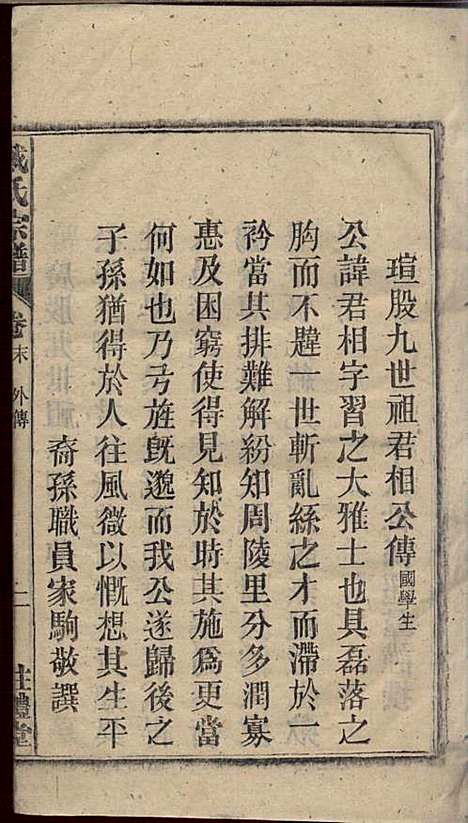 瑄股九世祖君相公傳國學生
公諱君相字習之大雅士也具磊落之
胸而不韙一世斬亂絲之才而滯於一
衿當其排難解紛知周陵里分多潤寡
惠及困窮使得見知於時其施爲更當
何如也乃弓旌旣邈而我公遂歸後之
子孫猶得於人往風微以慨想其生平
裔孫職員家駒敬譔
臧氏宗譜
卷末
外傳
上
禮堂